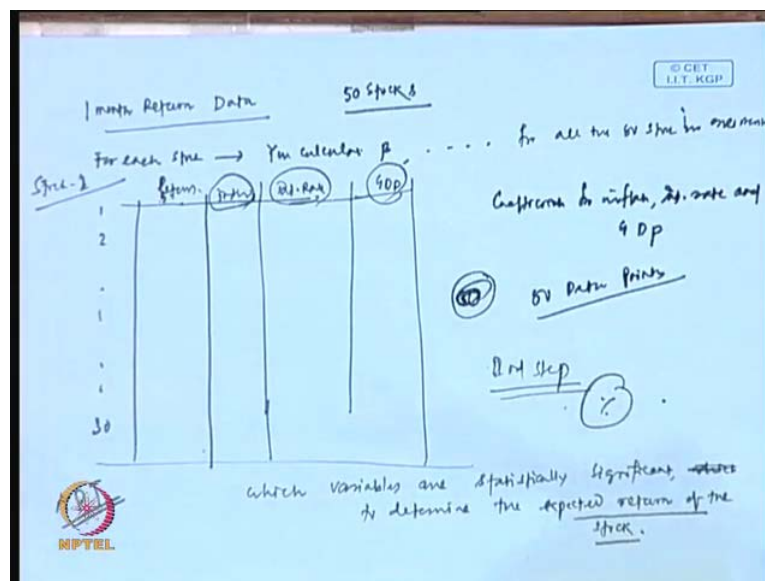 © CET
I.I.T. KGP
1 month Return Data 50 Stocks
For each stock → You calculate β . . . . for all the 50 stocks
Stock-1 Return Int. Rate GDP
1
2
30
Coefficients for inflan, int. rate and
GDP
50 Data Points
IInd step
which variables are statistically significant,
to determine the expected return of the
stock.
NPTEL